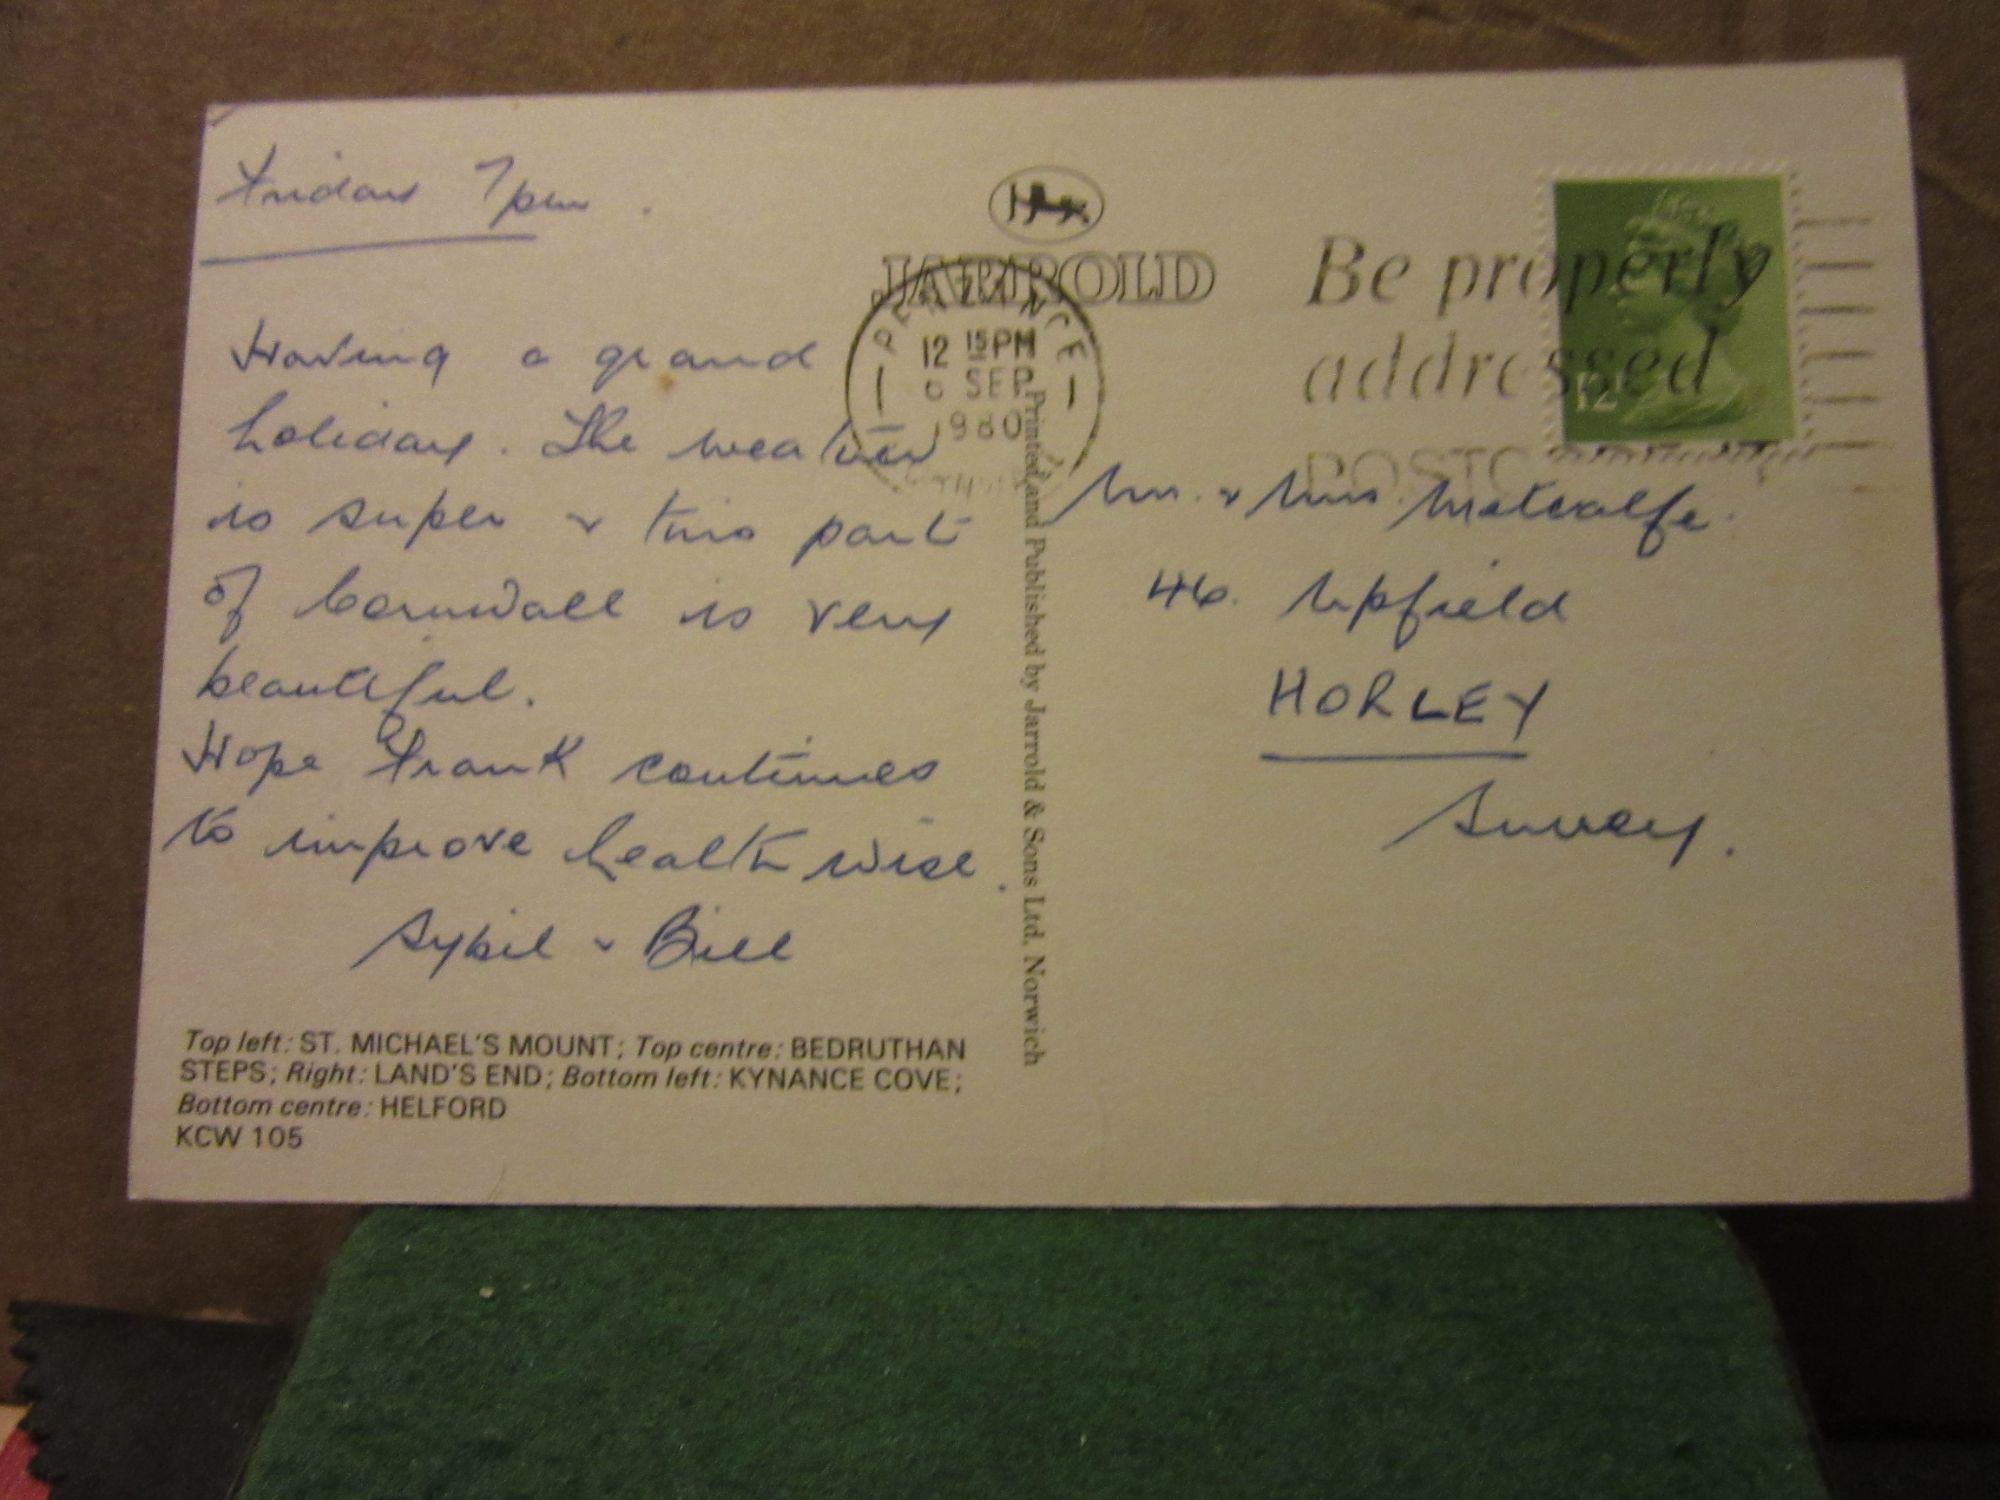 Friday 7pm.
Having a grand
holiday. The weather
is super & this part
of Cornwall is very
beautiful.
Hope Frank continues
to improve health wise.
Sybil & Bill
Top left: ST. MICHAEL'S MOUNT; Top centre: BEDRUTHAN
STEPS; Right: LAND'S END; Bottom left: KYNANCE COVE;
Bottom centre: HELFORD
KCW 105
JARROLD
Printed and Published by Jarrold & Sons Ltd. Norwich
PENZANCE
12 15 PM
SEP
1980
Be properly
addressed
12
Mr. & Mrs. Metcalfe.
46. Upfield
HORLEY
Surrey.